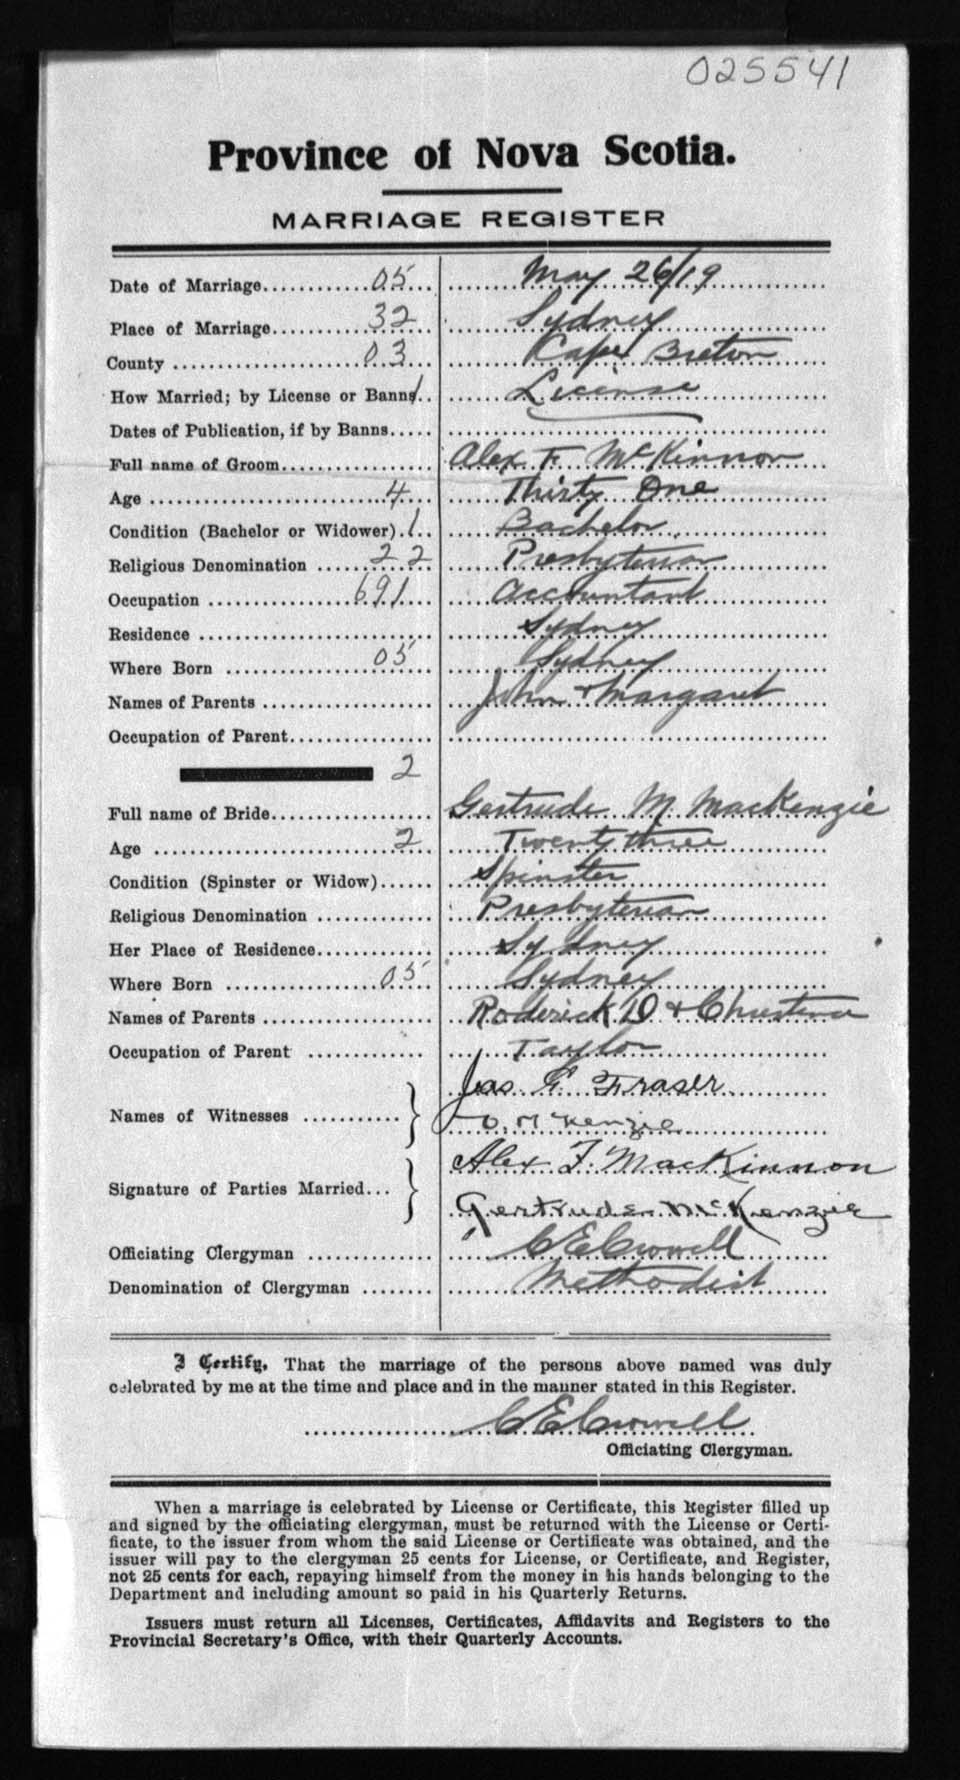 025541
Province of Nova Scotia.
MARRIAGE REGISTER
Date of Marriage............05... May 26/19
Place of Marriage............32... Sydney
County............03... Cape Breton
How Married; by License or Banns 1.. License
Dates of Publication, if by Banns.....
Full name of Groom................ Alex F. McKinnon
Age............4... Thirty One
Condition (Bachelor or Widower).1.. Bachelor
Religious Denomination .......22 Presbyterian
Occupation ................691... Accountant
Residence ........................ Sydney
Where Born ................05... Sydney
Names of Parents .................. John + Margaret
Occupation of Parent................
2
Full name of Bride.................. Gertrude M MacKenzie
Age ........................2.. Twenty three
Condition (Spinster or Widow)...... Spinster
Religious Denomination ............ Presbyterian
Her Place of Residence............. Sydney
Where Born ................05.. Sydney
Names of Parents .................. Roderick D + Christena
Occupation of Parent ............ Taylor
Names of Witnesses .......... } Jas G. Fraser
D. McKenzie
Signature of Parties Married... } Alex F. MacKinnon
Gertrude McKenzie
Officiating Clergyman ............. C E Crowell
Denomination of Clergyman ........ Methodist
I Certify, That the marriage of the persons above named was duly
celebrated by me at the time and place and in the manner stated in this Register.
C E Crowell
Officiating Clergyman.
When a marriage is celebrated by License or Certificate, this Register filled up
and signed by the officiating clergyman, must be returned with the License or Certi-
ficate, to the issuer from whom the said License or Certificate was obtained, and the
issuer will pay to the clergyman 25 cents for License, or Certificate, and Register,
not 25 cents for each, repaying himself from the money in his hands belonging to the
Department and including amount so paid in his Quarterly Returns.
Issuers must return all Licenses, Certificates, Affidavits and Registers to the
Provincial Secretary's Office, with their Quarterly Accounts.